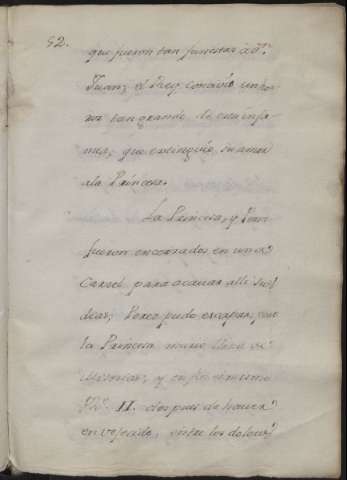 52.
que fueron tan funestas a Dn.
Juan; el Rey concivió un ho-
ror tan grande de esta infa-
mia, que extinguió su amor
ala Princesa.
La Princesa, y Perez
fueron encerrados en una
Carcel para acavar alli sus
dias; Perez pudo escapar, pero
la Princesa murio llena de
miserias, y en fin el mismo
II. despues de haver
envejecido, entre los dolores